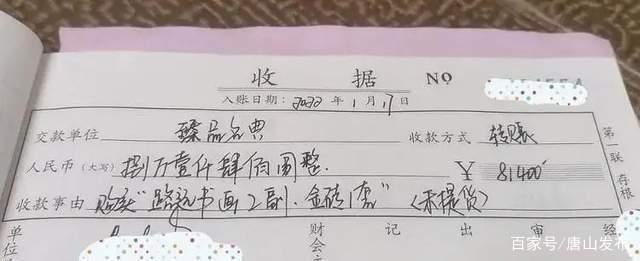 收 据 NO
入账日期：2022 年 1 月 17 日
交款单位 臻品名典 收款方式 转账
人民币（大写） 捌万壹仟肆佰圆整 ￥ 81400
收款事由 购买"路祝书画2副．金砖1套" （未提货）
第一联 存根
单位 财会 记 出 审 经
百家号/唐山发布